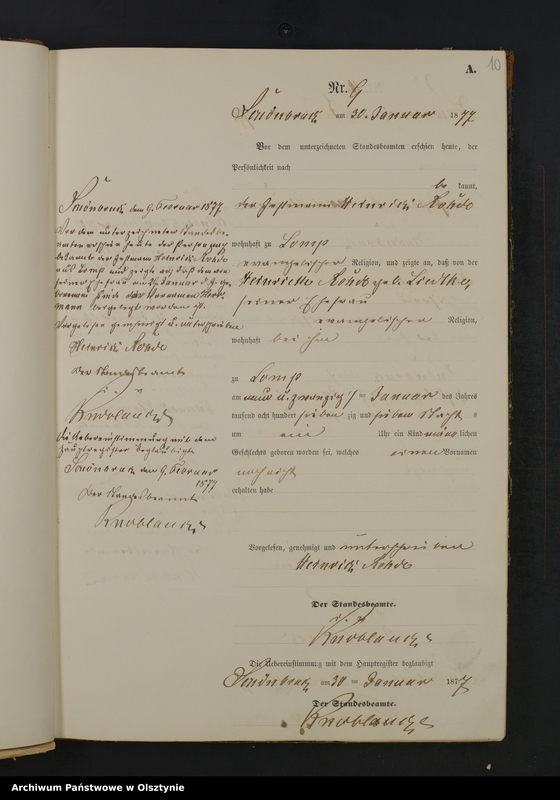 10
A.
Nr. 9
Schönbruch am 30. Januar 1877
Vor dem unterzeichneten Standesbeamten erschien heute, der
Persönlichkeit nach
be kannt,
der Heinrich Rohde
wohnhaft zu Lomp
evangelischer Religion, und zeigte an, daß von der
Henriette Rohde geb. Liedtke
seiner Ehefrau
evangelischer Religion,
wohnhaft bei ihm
zu Lomp
am neun u. zwanzig = Januar des Jahres
tausend acht hundert sieben zig und sieben Nachts
um ein Uhr ein Kind männlichen
Geschlechts geboren worden sei, welches einen Vornamen
noch nicht
erhalten habe
Vorgelesen, genehmigt und unterschrieben
Heinrich Rohde
Der Standesbeamte.
i. v.
Knoblauch
Die Uebereinstimmung mit dem Hauptregister beglaubigt
Schönbruch am 30 = Januar 1877
Der Standesbeamte.
Knoblauch
Schönbruch den 9. Februar 1877
Vor dem unterzeichneten Standesbe-
amten erschien heute der Person nach
bekannt der Heinrich Rohde
aus Lomp und zeigte an, daß dem von
seiner Ehefrau am 29. Januar d. J. ge-
borenen Kinde der Vornamen Herr-
mann beigelegt worden ist.
Vorgelesen genehmigt u. unterschrieben
Heinrich Rohde
Der Standesbeamte
i. v.
Knoblauch
Die Uebereinstimmung mit dem
Hauptregister beglaubigt
Schönbruch den 9. Februar
1877
Der Standesbeamte
Knoblauch
Archiwum Państwowe w Olsztynie